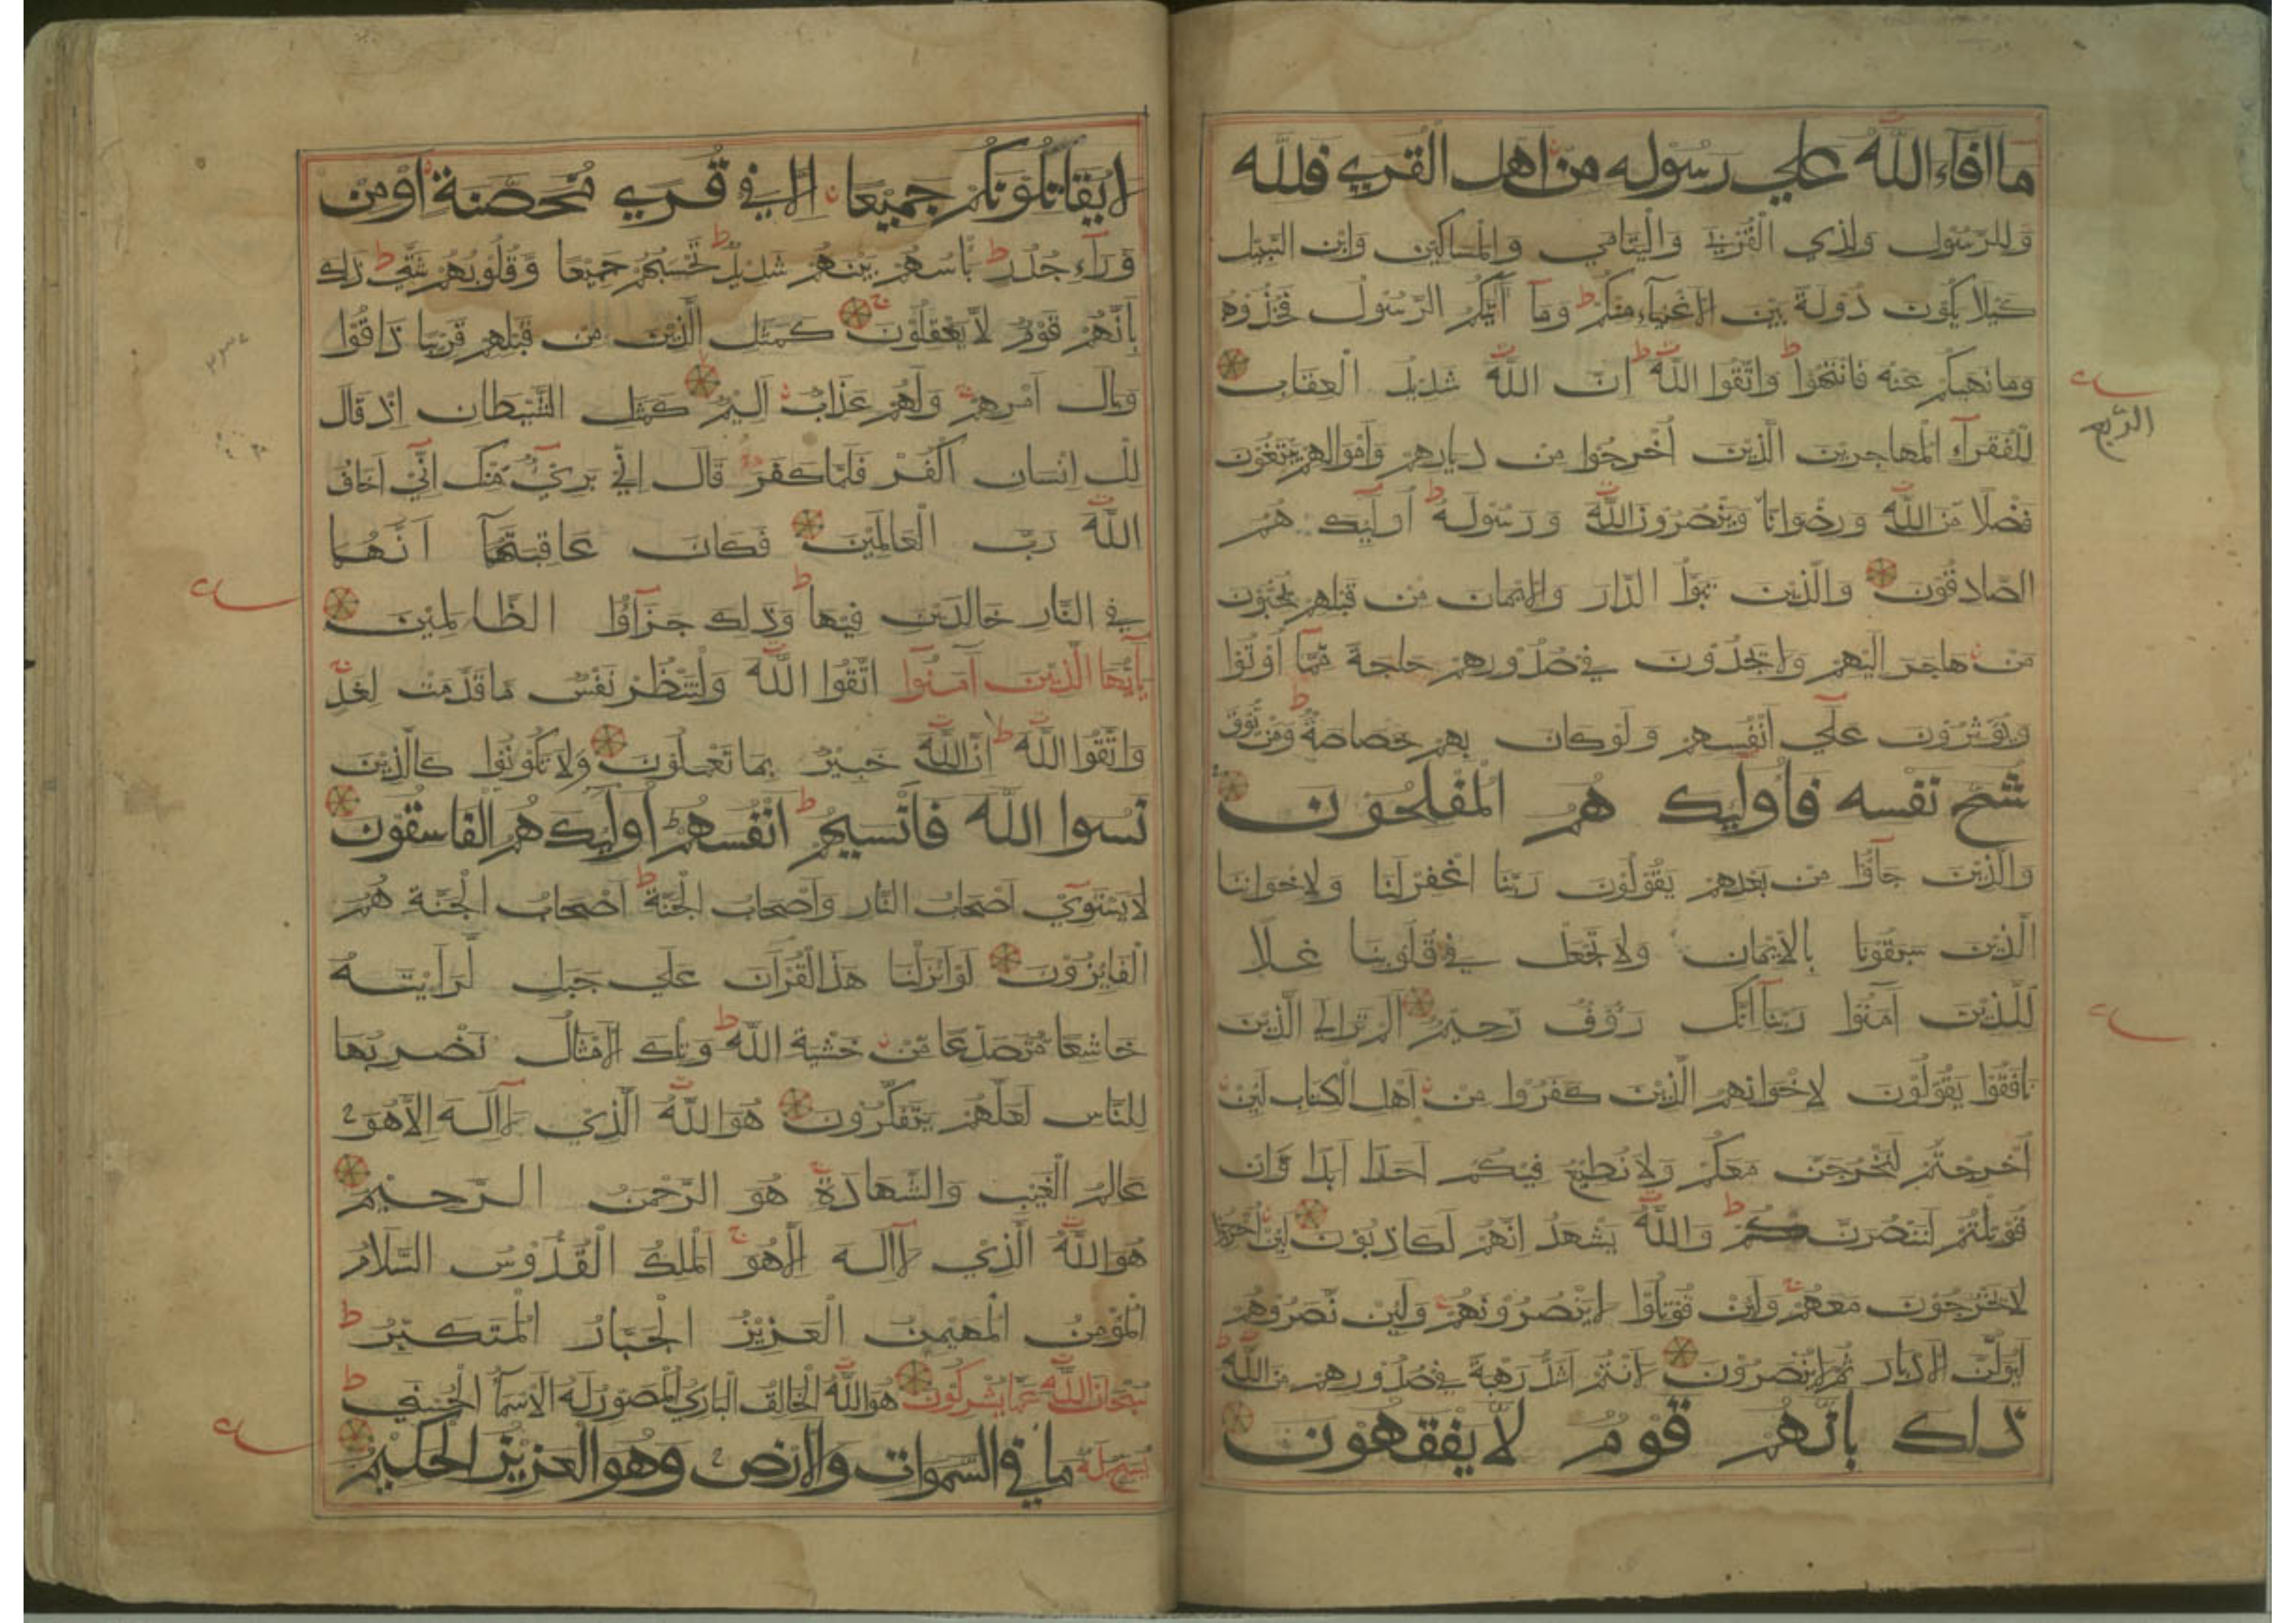 ما افآء الله علي رسوله من اهل القري فلله
وللرسول ولذي القربي واليتامي والمساكين وابن السبيل
كيلا يكون دولة بين الاغنيآء منكم ط وما آتيكم الرسول فخذوه
وما نهيكم عنه فانتهوا ط واتقوا الله ط ان الله شديد العقاب
للفقرآء المهاجرين الذين اخرجوا من ديارهم واموالهم يبتغون
الربع
فضلا من الله ورضوانا وينصرون الله ورسوله ط اوليك هم
الصادقون والذين تبوؤ الدار والايمان من قبلهم يحبون
من هاجر اليهم ولا يجدون في صدورهم حاجة مما اوتوا
ويوثرون علي انفسهم ولو كان بهم خصاصة ط ومن يوق
شح نفسه فاوليك هم المفلحون
والذين جآؤا من بعدهم يقولون ربنا اغفر لنا ولاخواننا
الذين سبقونا بالايمان ولا تجعل في قلوبنا غلا
للذين آمنوا ربنآ انك رؤف رحيم الم تر الي الذين
نافقوا يقولون لاخوانهم الذين كفروا من اهل الكتاب لين
اخرجتم لنخرجن معكم ولا نطيع فيكم احدا ابدا وان
قوتلتم لننصرنكم ط والله يشهد انهم لكاذبون لين اخرجوا
لا يخرجون معهم ولين قوتلوا لا ينصرونهم ولين نصروهم
ليولن الادبار ثم لا ينصرون لانتم اشد رهبة في صدورهم من الله ط
ذلك بانهم قوم لا يفقهون
لا يقاتلونكم جميعا الا في قري محصنة او من
ورآء جدر ط باسهم بينهم شديد ط تحسبهم جميعا وقلوبهم شتي ط ذلك
بانهم قوم لا يعقلون ج كمثل الذين من قبلهم قريبا ذاقوا
وبال امرهم ولهم عذاب اليم كمثل الشيطان اذ قال
للانسان اكفر فلما كفر قال اني بريء منك اني اخاف
الله رب العالمين فكان عاقبتهمآ انهما
في النار خالدين فيها ط وذلك جزآؤا الظالمين
يآيها الذين آمنوا اتقوا الله ولتنظر نفس ما قدمت لغد
واتقوا الله ط ان الله خبير بما تعملون ولا تكونوا كالذين
نسوا الله فانسيهم انفسهم ط اوليك هم الفاسقون
لا يستوي اصحاب النار واصحاب الجنة ط اصحاب الجنة هم
الفايزون لو انزلنا هذا القرآن علي جبل لرايته
خاشعا متصدعا من خشية الله ط وتلك الامثال نضربها
للناس لعلهم يتفكرون هو الله الذي لآ اله الا هو
عالم الغيب والشهادة هو الرحمن الرحيم
هو الله الذي لآ اله الا هو ج الملك القدوس السلام
المؤمن المهيمن العزيز الجبار المتكبر ط
سبحان الله عما يشركون هو الله الخالق الباري المصور له الاسمآ الحسني ط
يسبح له ما في السموات والارض وهو العزيز الحكيم